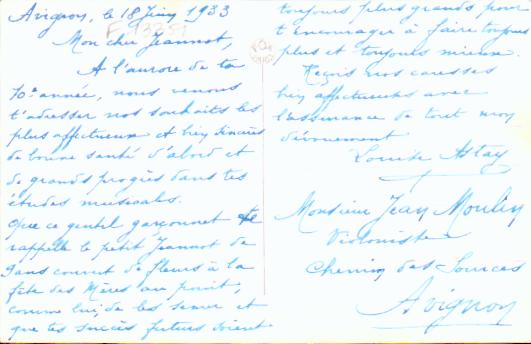 Avignon, le 18 Juin 1933
Mon cher Jeannot,
A l'aurore de ta
10e année, nous venons
t'adresser nos souhaits les
plus affectueux et bien sincères
de bonne santé d'abord et
de grands progrès dans tes
études musicales.
Que ce gentil garçonnet te
rappelle le petit Jeannot de
9 ans couvert de fleurs à la
fête des Mères au
comme lui, de les semer et
que tes succès futurs soient
toujours plus grands pour
t'encourager à faire toujours
plus et toujours mieux.
Reçois nos caresses
bien affectueuses avec
l'assurance de tout mon
dévouement
Louise Astay
Monsieur Jean Moulin
Violoniste
Chemin des Sources
Avignon